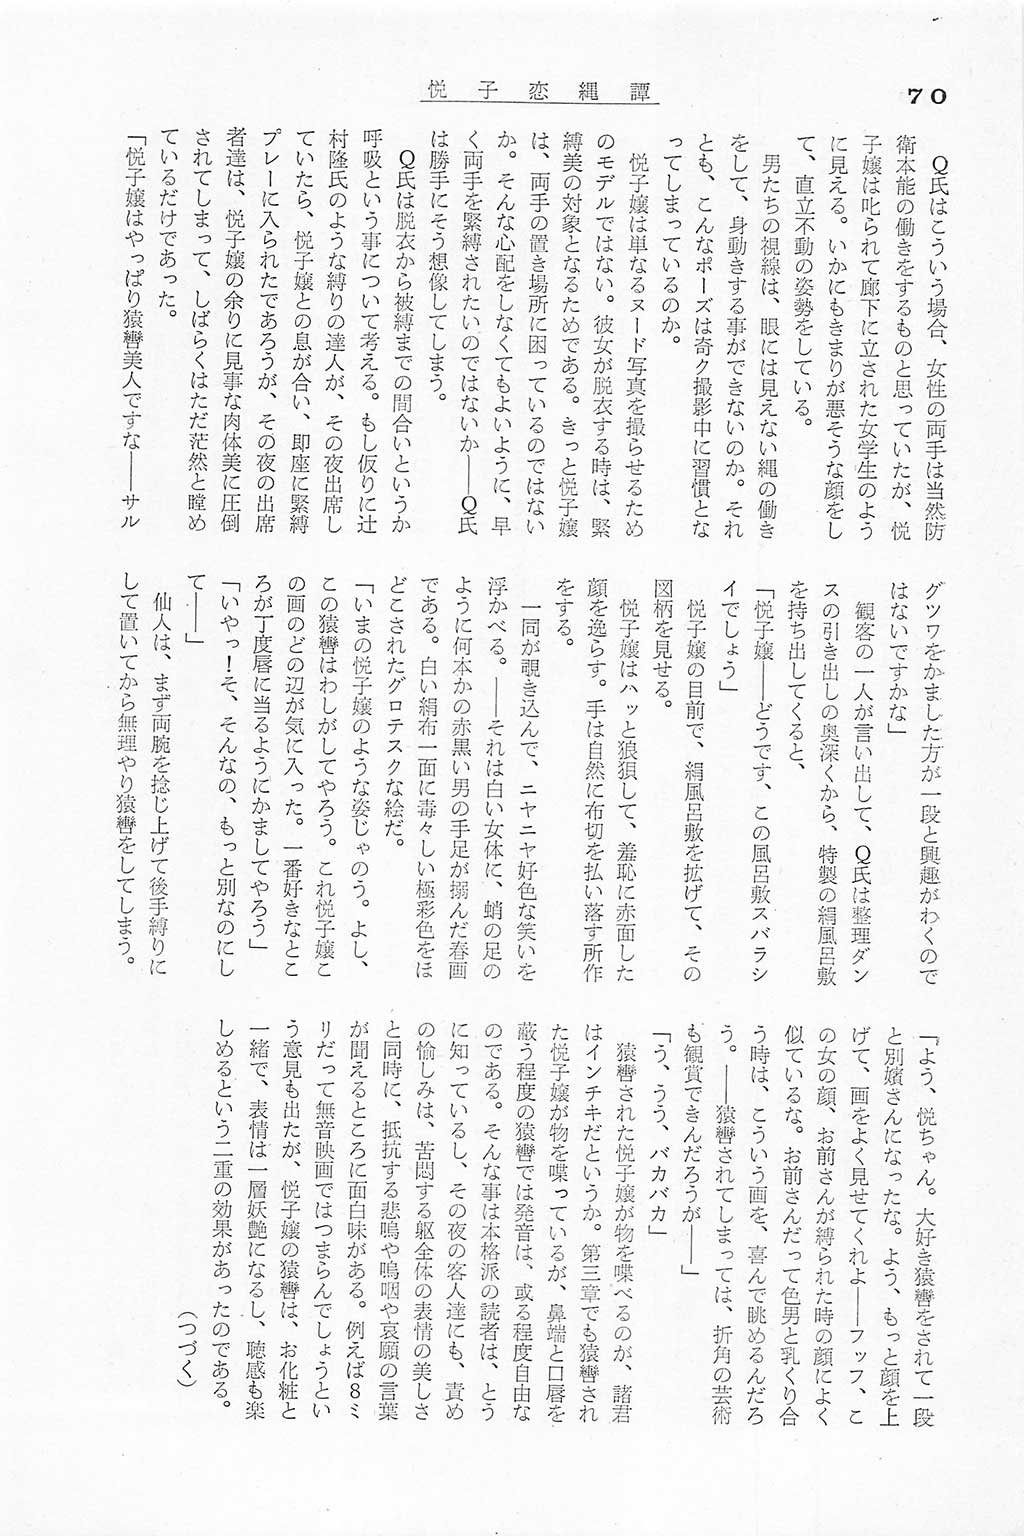 70
悦子恋縄譚
Q氏はこういう場合、女性の両手は当然防
衛本能の働きをするものと思っていたが、悦
子嬢は叱られて廊下に立された女学生のよう
に見える。いかにもきまりが悪そうな顔をし
て、直立不動の姿勢をしている。
男たちの視線は、眼には見えない縄の働き
をして、身動きする事ができないのか。それ
とも、こんなポーズは奇ク撮影中に習慣とな
ってしまっているのか。
悦子嬢は単なるヌード写真を撮らせるため
のモデルではない。彼女が脱衣する時は、緊
縛美の対象となるためである。きっと悦子嬢
は、両手の置き場所に困っているのではない
か。そんな心配をしなくてもよいように、早
く両手を緊縛されたいのではないか――Q氏
は勝手にそう想像してしまう。
Q氏は脱衣から被縛までの間合いというか
呼吸という事について考える。もし仮りに辻
村隆氏のような縛りの達人が、その夜出席し
ていたら、悦子嬢との息が合い、即座に緊縛
プレーに入られたであろうが、その夜の出席
者達は、悦子嬢の余りに見事な肉体美に圧倒
されてしまって、しばらくはただ茫然と瞠め
ているだけであった。
「悦子嬢はやっぱり猿轡美人ですな――サル
グツワをかました方が一段と興趣がわくので
はないですかな」
観客の一人が言い出して、Q氏は整理ダン
スの引き出しの奥深くから、特製の絹風呂敷
を持ち出してくると、
「悦子嬢――どうです、この風呂敷スバラシ
イでしょう」
悦子嬢の目前で、絹風呂敷を拡げて、その
図柄を見せる。
悦子嬢はハッと狼狽して、羞恥に赤面した
顔を逸らす。手は自然に布切を払い落す所作
をする。
一同が覗き込んで、ニヤニヤ好色な笑いを
浮かべる。――それは白い女体に、蛸の足の
ように何本かの赤黒い男の手足が搦んだ春画
である。白い絹布一面に毒々しい極彩色をほ
どこされたグロテスクな絵だ。
「いまの悦子嬢のような姿じゃのう。よし、
この猿轡はわしがしてやろう。これ悦子嬢こ
の画のどの辺が気に入った。一番好きなとこ
ろが丁度唇に当るようにかましてやろう」
「いやっ！そ、そんなの、もっと別なのにし
て――」
仙人は、まず両腕を捻じ上げて後手縛りに
して置いてから無理やり猿轡をしてしまう。
「よう、悦ちゃん。大好き猿轡をされて一段
と別嬪さんになったな。よう、もっと顔を上
げて、画をよく見せてくれよ――フッフ、こ
の女の顔、お前さんが縛られた時の顔によく
似ているな。お前さんだって色男と乳くり合
う時は、こういう画を、喜んで眺めるんだろ
う。――猿轡されてしまっては、折角の芸術
も観賞できんだろうが――」
「う、うう、バカバカ」
猿轡された悦子嬢が物を喋べるのが、諸君
はインチキだというか。第三章でも猿轡され
た悦子嬢が物を喋っているが、鼻端と口唇を
蔽う程度の猿轡では発音は、或る程度自由な
のである。そんな事は本格派の読者は、とう
に知っているし、その夜の客人達にも、責め
の愉しみは、苦悶する躯全体の表情の美しさ
と同時に、抵抗する悲鳴や嗚咽や哀願の言葉
が聞えるところに面白味がある。例えば8ミ
リだって無音映画ではつまらんでしょうとい
う意見も出たが、悦子嬢の猿轡は、お化粧と
一緒で、表情は一層妖艶になるし、聴感も楽
しめるという二重の効果があったのである。
（つづく）